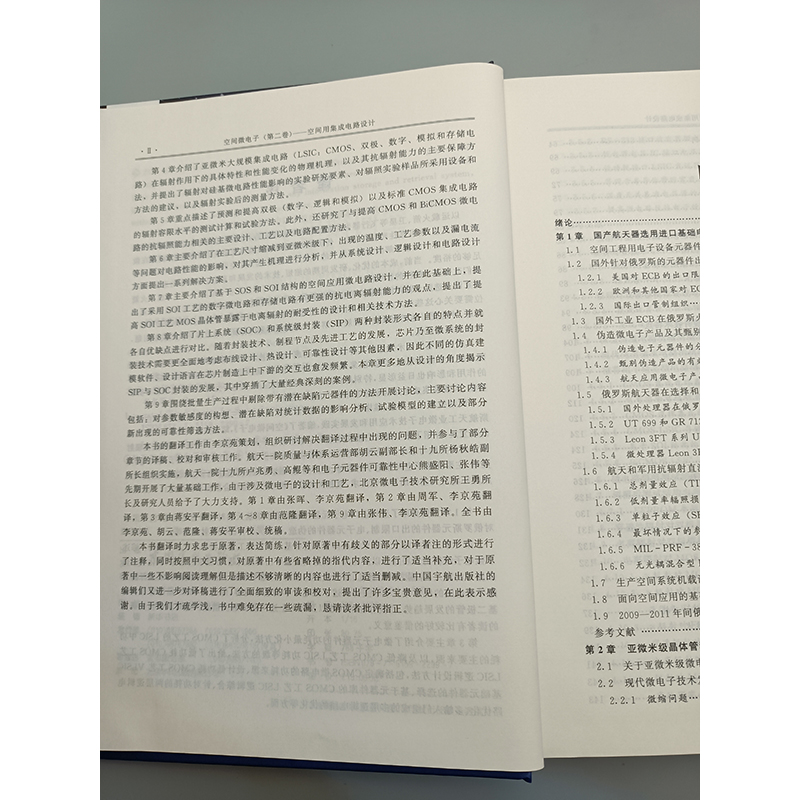 · Ⅱ ·
空间微电子（第二卷）——空间用集成电路设计
第4章介绍了亚微米大规模集成电路（LSIC：CMOS、双极、数字、模拟和存储电
路）在辐射作用下的具体特性和性能变化的物理机理，以及其抗辐射能力的主要保障方
法，并提出了辐射对硅基微电路性能影响的实验研究要素、对辐照实验样品所采用设备和
方法的建议、以及辐射实验后的测量方法。
第5章重点描述了预测和提高双极（数字、逻辑和模拟）以及标准CMOS集成电路
的辐射容限水平的测试计算和试验方法。此外，还研究了与提高CMOS和BiCMOS微电
路的抗辐照能力相关的主要设计、工艺以及电路配置方法。
第6章主要介绍了在工艺尺寸缩减到亚微米级下，出现的温度、工艺参数以及漏电流
等问题对电路性能的影响，对其产生机理进行分析，并从系统设计、逻辑设计和电路设计
方面提出一系列解决方案。
第7章主要介绍了基于SOS和SOI结构的空间应用微电路设计，并在此基础上，提
出了采用SOI工艺的数字微电路和存储电路有更强的抗电离辐射能力的观点，提出了提
高SOI工艺MOS晶体管暴露于电离辐射的耐受性的设计和相关技术方法。
第8章介绍了片上系统（SOC）和系统级封装（SIP）两种封装形式各自的特点并就
各自优缺点进行对比。随着封装技术、制程节点及先进工艺的发展，芯片乃至微系统的封
装技术需要更全面地考虑布线设计、热设计、可靠性设计等其他因素，因此不同的仿真建
模软件、设计语言在芯片制造上中下游的交互也愈发频繁。本章更多地从设计的角度揭示
SIP与SOC封装的发展，其中穿插了大量经典深刻的案例。
第9章围绕批量生产过程中剔除带有潜在缺陷元器件的方法开展讨论，主要讨论内容
包括：对参数敏感度的构想、潜在缺陷对统计数据的影响分析、试验模型的建立以及部分
新出现的可靠性筛选方法。
本书的翻译工作由李京苑策划，组织研讨解决翻译过程中出现的问题，并参与了部分
章节的译稿、校对和审核工作。航天一院质量与体系运营部胡云副部长和十九所杨秋皓副
所长组织实施，航天一院十九所卢兆勇、高鲲等和电子元器件可靠性中心熊盛阳、张伟等
先期开展了大量基础工作，由于涉及微电子的设计和工艺，北京微电子技术研究所王勇所
长及研究人员给予了大力支持。第1章由张晖、李京苑翻译，第2章由周军、李京苑翻
译，第3章由蒋安平翻译，第4～8章由范隆翻译，第9章由张伟、李京苑翻译。全书由
李京苑、胡云、范隆、蒋安平审校、统稿。
本书翻译时力求忠于原著，表达简练，针对原著中有歧义的部分以译者注的形式进行
了注释，同时按照中文习惯，对原著中有些省略掉的指代内容，进行了适当补充，对于原
著中一些不影响阅读理解但是描述不够清晰的内容也进行了适当删减。中国宇航出版社的
编辑们又进一步对译稿进行了全面细致的审读和校对，提出了许多宝贵意见，在此表示感
谢。由于我们才疏学浅，书中难免存在一些疏漏，恳请读者批评指正。
绪论
第1章 国产航天器选用进口基础
1.1 空间工程用电子设备元器件
1.2 国外针对俄罗斯的元器件出
1.2.1 美国对ECB的出口限
1.2.2 欧洲和其他国家对EC
1.2.3 国际出口管制组织
1.3 国外工业ECB在俄罗斯
1.4 伪造微电子产品及其甄别
1.4.1 伪造电子元器件的分
1.4.2 甄别伪造产品的有效
1.4.3 航天应用微电子产
1.5 俄罗斯航天器在选择和
1.5.1 国外处理器在俄罗
1.5.2 UT 699和GR 71
1.5.3 Leon 3FT系列U
1.5.4 微处理器Leon 3F
1.6 航天和军用抗辐射直流
1.6.1 总剂量效应（TI
1.6.2 低剂量率辐照损
1.6.3 单粒子效应（SE
1.6.4 最坏情况下的参
1.6.5 MIL-PRF-38
1.6.6 无光耦混合型
1.7 生产空间系统机载设
1.8 面向空间应用的基
1.9 2009—2011年间俄
参考文献
第2章 亚微米级晶体管
2.1 关于亚微米级微电
2.2 现代微电子技术发
2.2.1 微缩问题